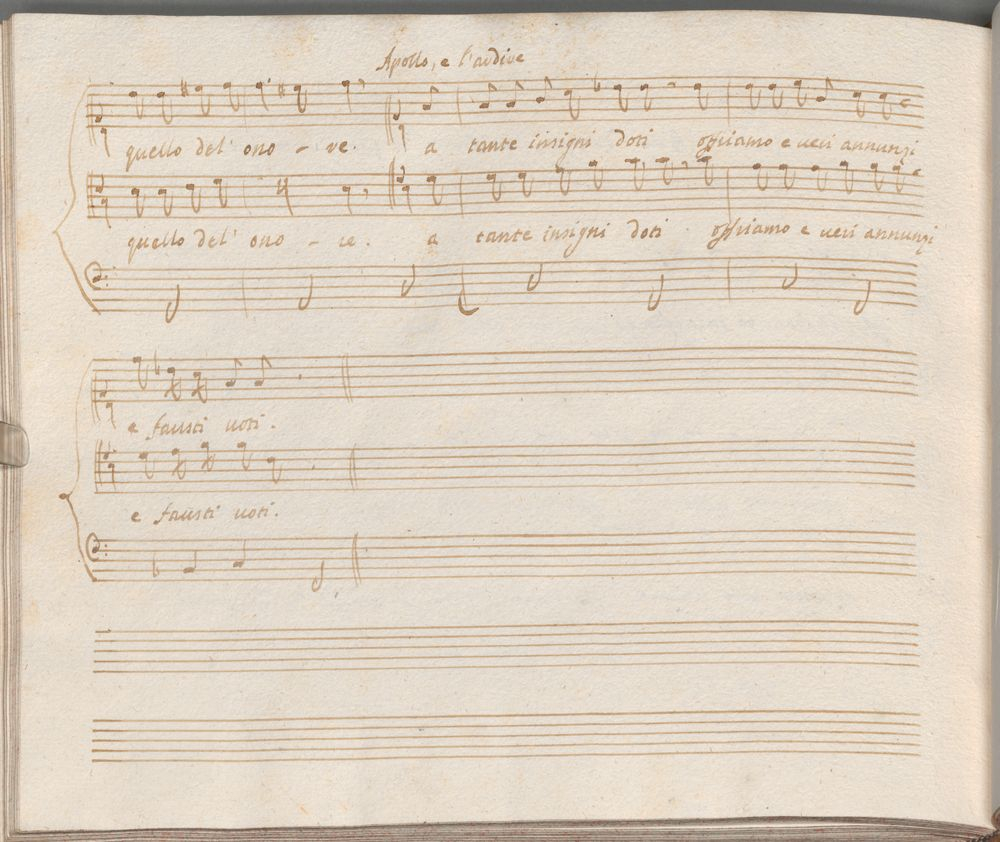 Apollo, e l'ardire
quello del' ono - re. a tante insigni doti offriamo e veri annunzi
quello del' ono - re. a tante insigni doti offriamo e veri annunzi
e fausti voti.
e fausti voti.